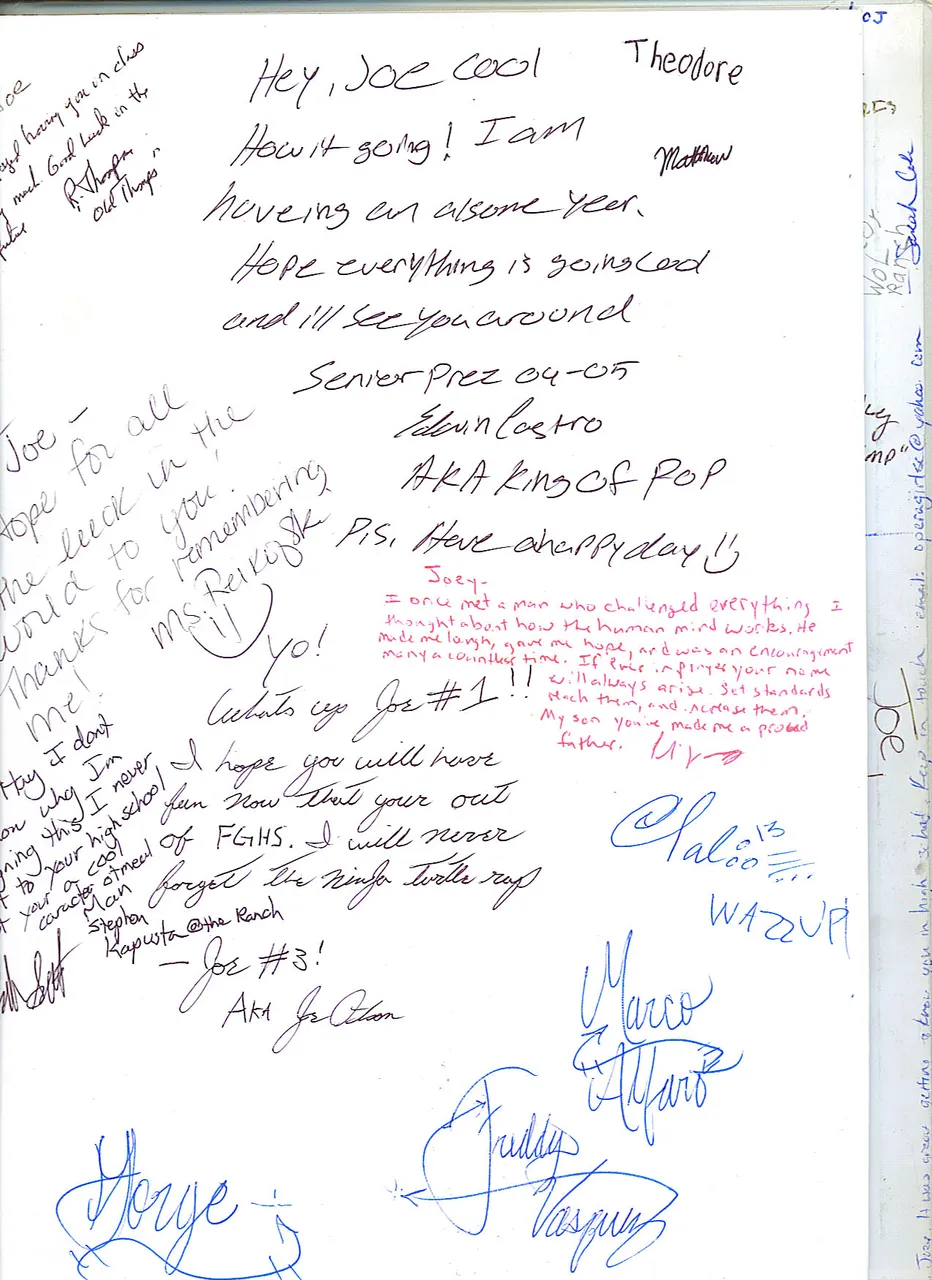 Joe
having you in class
much. Good luck in the
R. Thompson
Old Thomps
Hey, Joe Cool
How it going! I am
haveing an alsome year.
Hope everything is going Cood
and i'll see you around
Senior Prez 04-05
Edwin Castro
AKA King of POP
P.S. Have a happy day
Theodore
Matthew
Joe -
Hope for all
the luck in the
world to you.
Thanks for remembering
me!
Ms. Reikofski
Joey-
I once met a man who challenged everything I
thought about how the human mind works. He
made me laugh, gave me hope, and was an encouragement
many a countless time. If ever in prayer your name
will always arise. Set standards
reach them, and increase them,
My son you've made me a proud
father.
Yo!
Whats up Joe #1!!
I hope you will have
fun now that your out
of FGHS. I will never
forget the ninja turtle rap
— Joe #3!
AKA Joe Olson
Hay I dont
why Im
this I never
to your high school
your a cool
caracter otmeal
Man
Stephen
Kapusta @ the Ranch
13
WAZZUP!
Marco
Alfaro
Freddy
Vasquez
Gorge
OJ
Sarah
Wol
Ranch
Joe
Joey, It was great getting to know you in high school. Keep in touch email: operagirlsc@yahoo.com